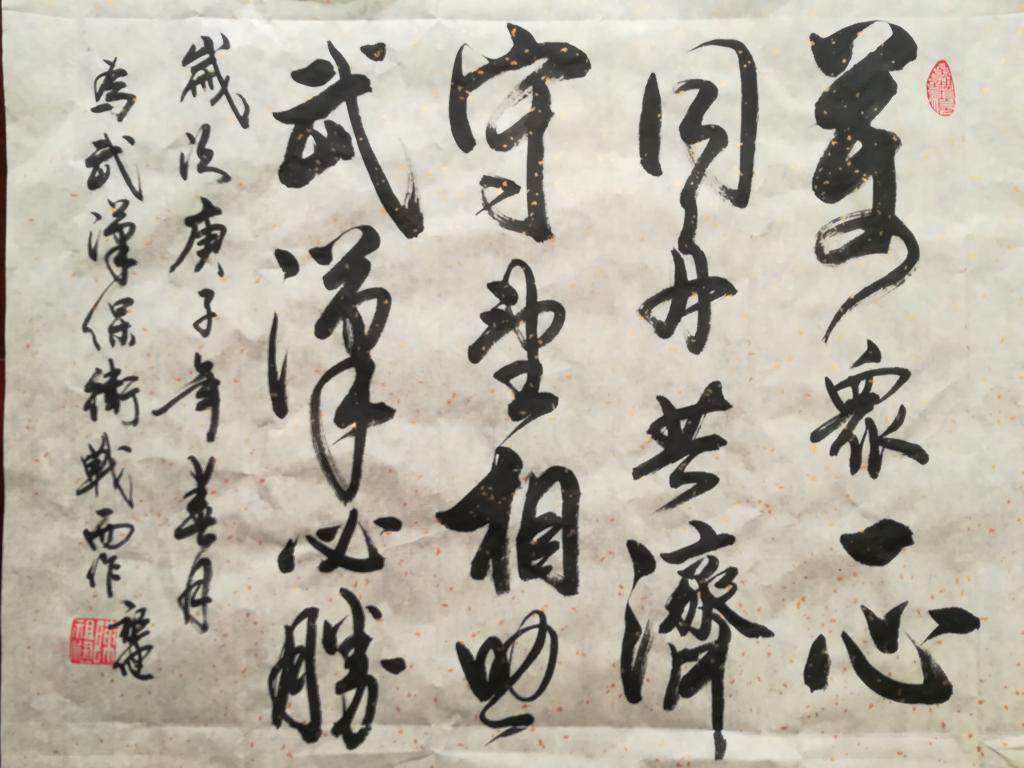 萬衆一心
同舟共濟
守望相助
武漢必勝
歲次庚子年春月
為武漢保衛戰而作